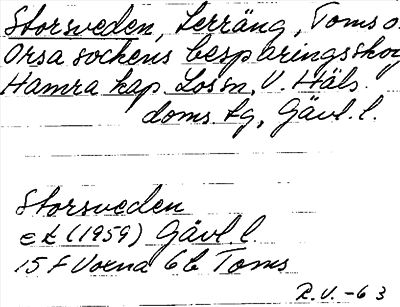 Storsveden, Terräng, Toms o.
Orsa sockens besparingsskog
Hamra kap. Lossn, V. Häls.
doms. fg, Gävl. l.
Storsveden
ek (1959) Gävl. l.
15 f Voxna 6b Toms
R.V. -63